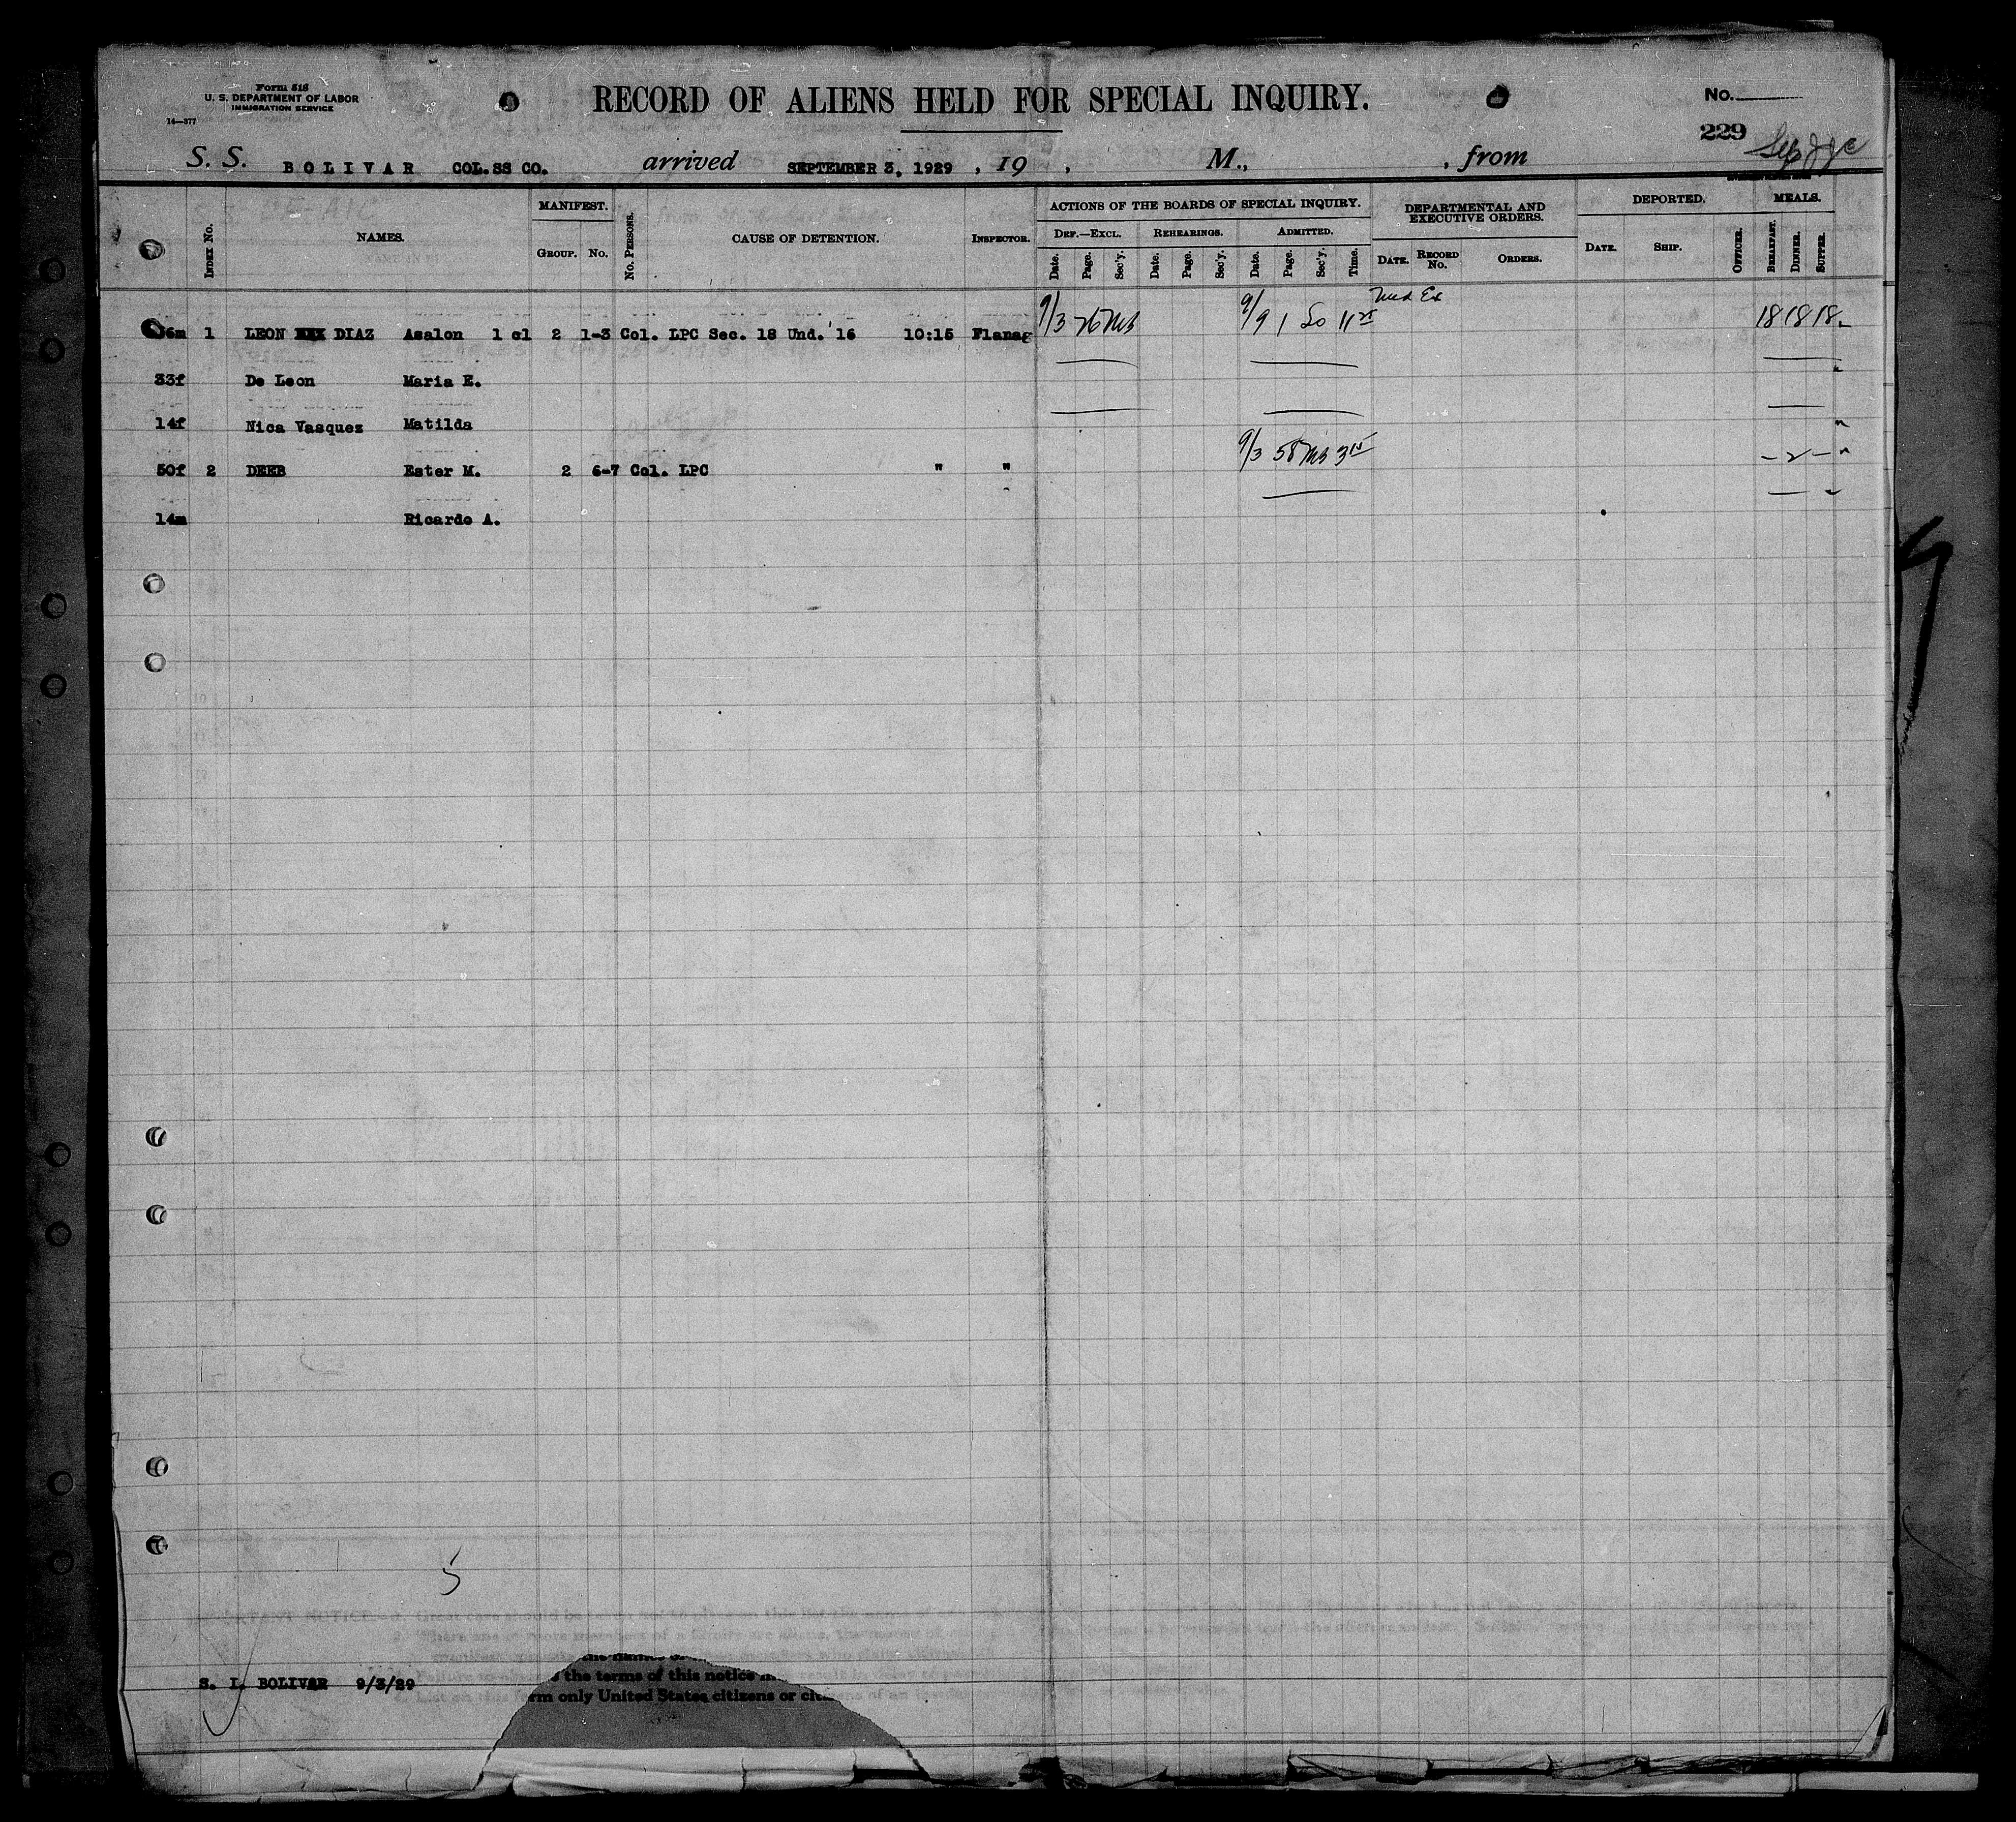 Form 518
U. S. DEPARTMENT OF LABOR
IMMIGRATION SERVICE
14—377
RECORD OF ALIENS HELD FOR SPECIAL INQUIRY.
No.
229
S. S. BOLIVAR COL.SS CO. arrived SEPTEMBER 3, 1929 , 19 , M., , from
INDEX No. NAMES. MANIFEST. GROUP. No. No. PERSONS. CAUSE OF DETENTION. INSPECTOR. ACTIONS OF THE BOARDS OF SPECIAL INQUIRY. DEPARTMENTAL AND EXECUTIVE ORDERS. DEPORTED. MEALS.
DEF.—EXCL. REHEARINGS. ADMITTED.
Date. Page. Sec'y. Date. Page. Sec'y. Date. Page. Sec'y. Time. DATE. RECORD No. ORDERS. DATE. SHIP. OFFICER. BREAKFAST. DINNER. SUPPER.
Med Ex
6m 1 LEON XXX DIAZ Asalon 1 cl 2 1-3 Col. LPC Sec. 18 Und. 16 10:15 Flanag 9/3 26 MS 9/9 1 So 11 25 18 18 18
33f De Leon Maria E.
14f Nica Vasquez Matilda
50f 2 DEEB Ester M. 2 6-7 Col. LPC " " 9/3 58 MS 3 15 – 2 –
14m Ricardo A.
5
the terms of this notice
S. I. BOLIVAR 9/3/29
rm only United States citizens or